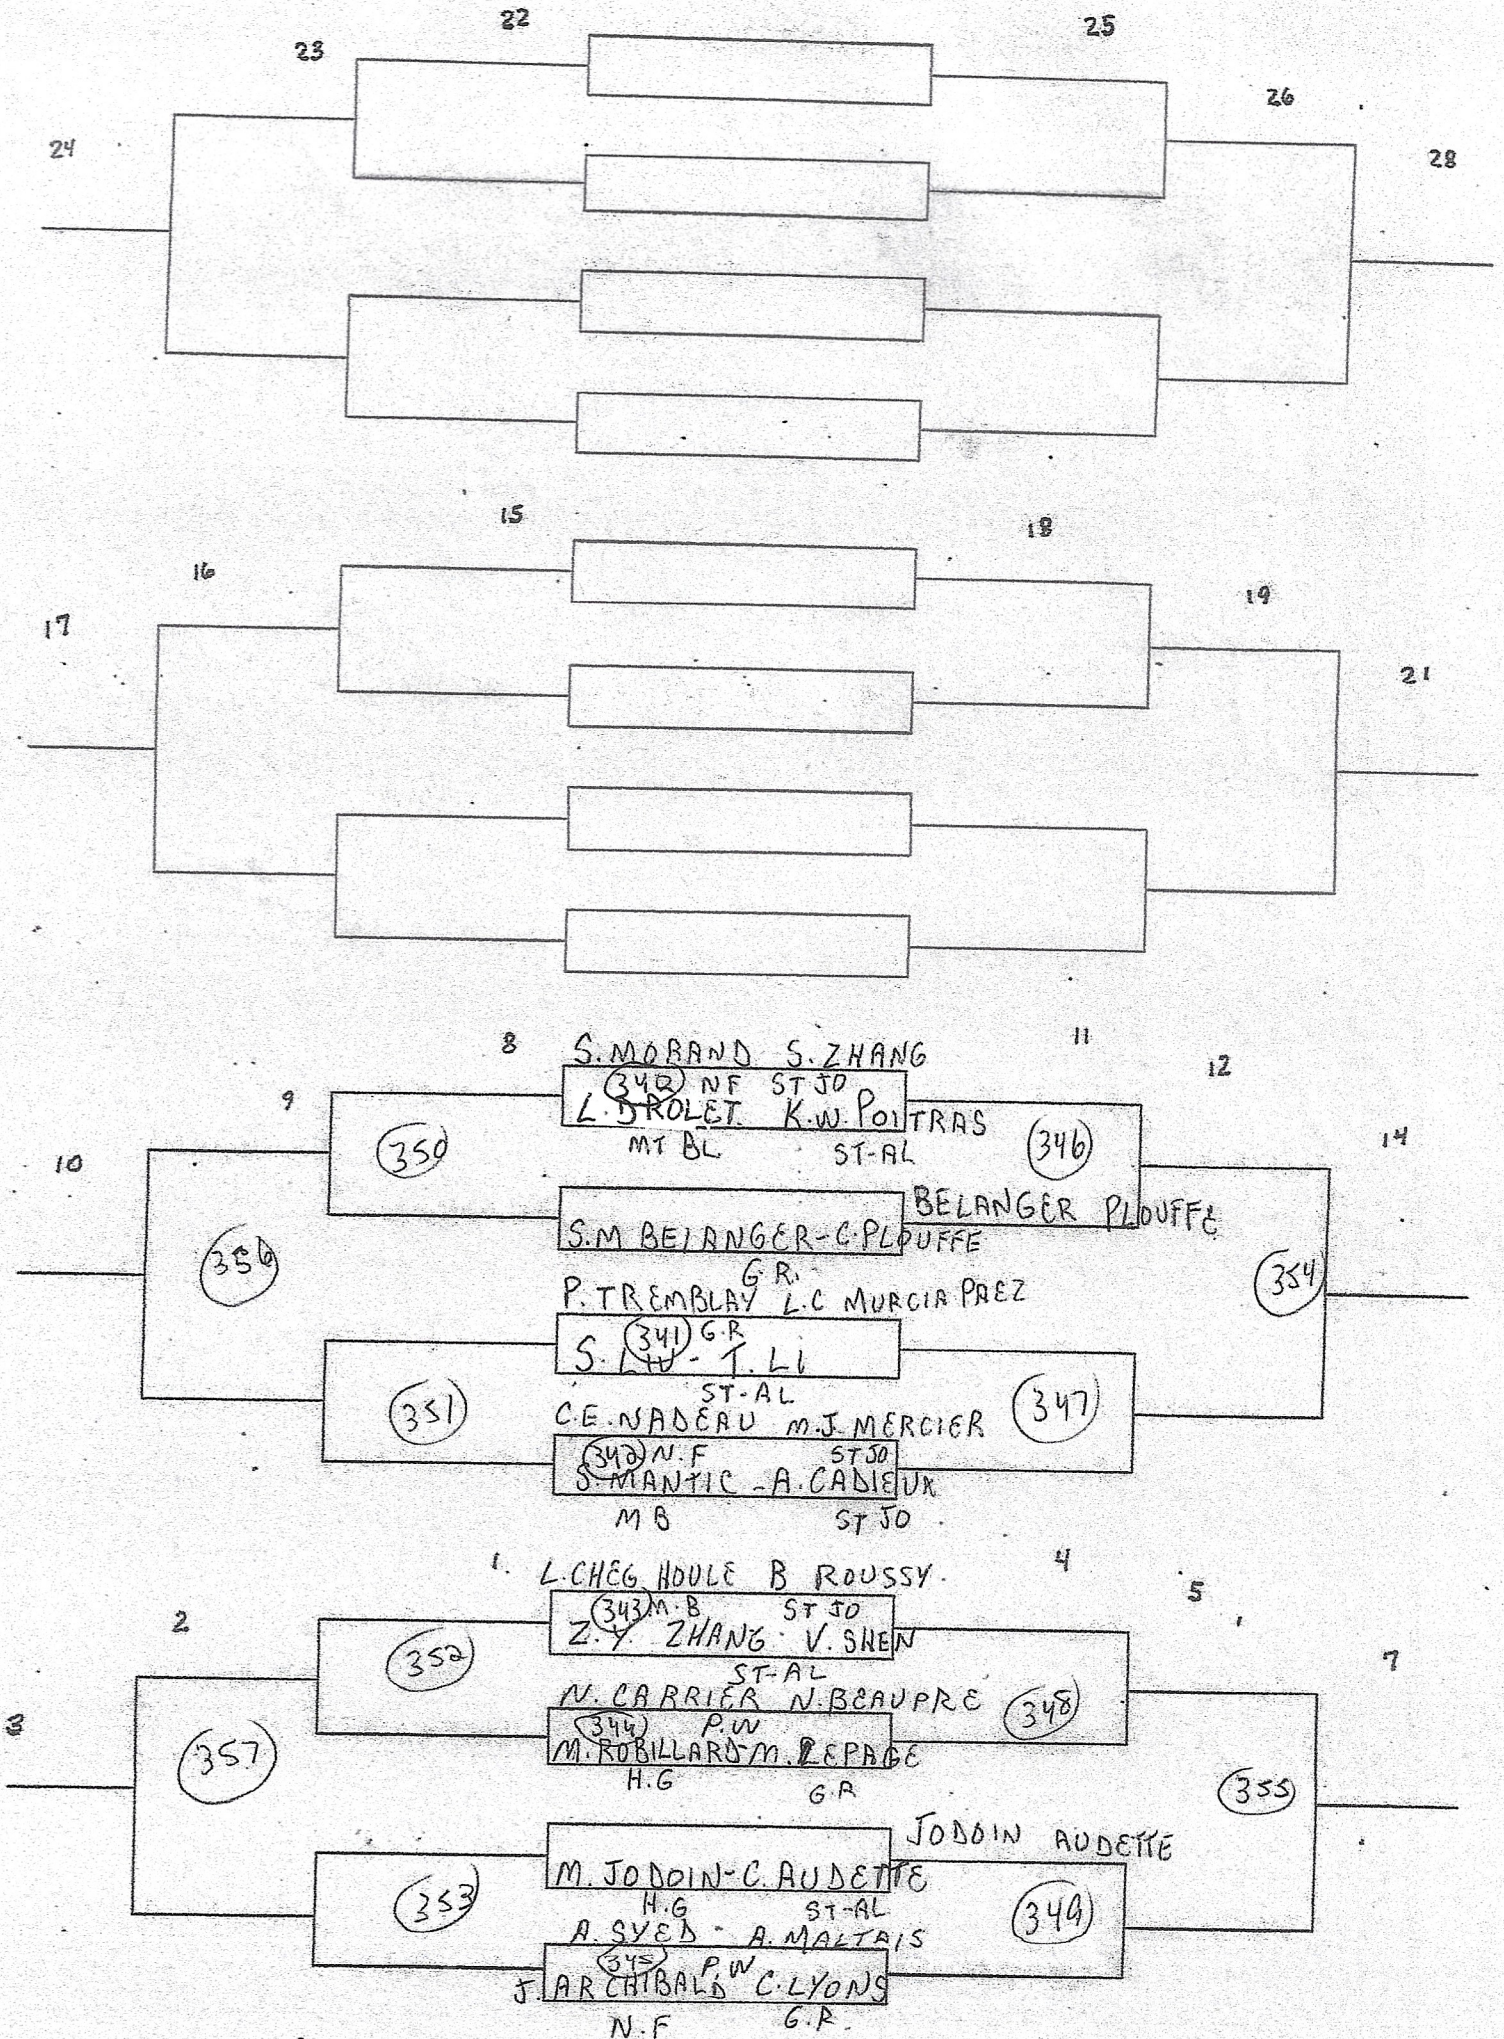 22
25
23
26
24
28
15
18
16
19
17
21
8
S.MORAND S. ZHANG
11
12
9
340 NF ST JO
L. DROLET K.W. POITRAS
350
MT BL ST-AL
346
14
10
BELANGER PLOUFFE
S.M BELANGER-C.PLOUFFE
356
G.R.
354
P. TREMBLAY L.C MURCIA PAEZ
341 G.R
S. LIU - T. LI
ST-AL
351
347
C.E. NADEAU M.J. MERCIER
342 N.F ST JO
S. MANTIC - A. CADIEUX
M B ST JO
1.
4
L.CHEG HOULE B ROUSSY.
5
2
343 M.B ST JO
Z.Y. ZHANG V. SHEN
352
ST-AL
7
N. CARRIER N. BEAUPRE
348
3
344 P.W
M. ROBILLARD-M. LEPAGE
357
H.G G.R
355
JODOIN AUDETTE
M. JODOIN-C. AUDETTE
353
H.G ST-AL
349
A. SYED - A. MALTAIS
345 P.W
J. ARCHIBALD C. LYONS
N.F G.R.